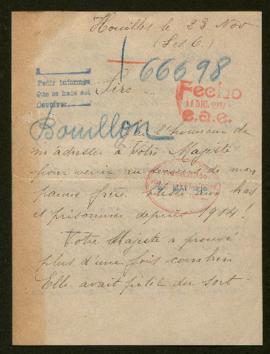 Houilles le 23 Nov
(Set O.)
+ 66698
Pedir informe
Que se haga así
Devolver
Fecho
11 DIC. 1917
e.a.e.
Sire
Bouillon
l'honneur de
m'adresser à Votre Majesté
pour venir au secours de mon
pauvre frère
et prisonnier depuis 1914.
Votre Majesté a prouvé
plus d'une fois combien
Elle avait pitié du sort